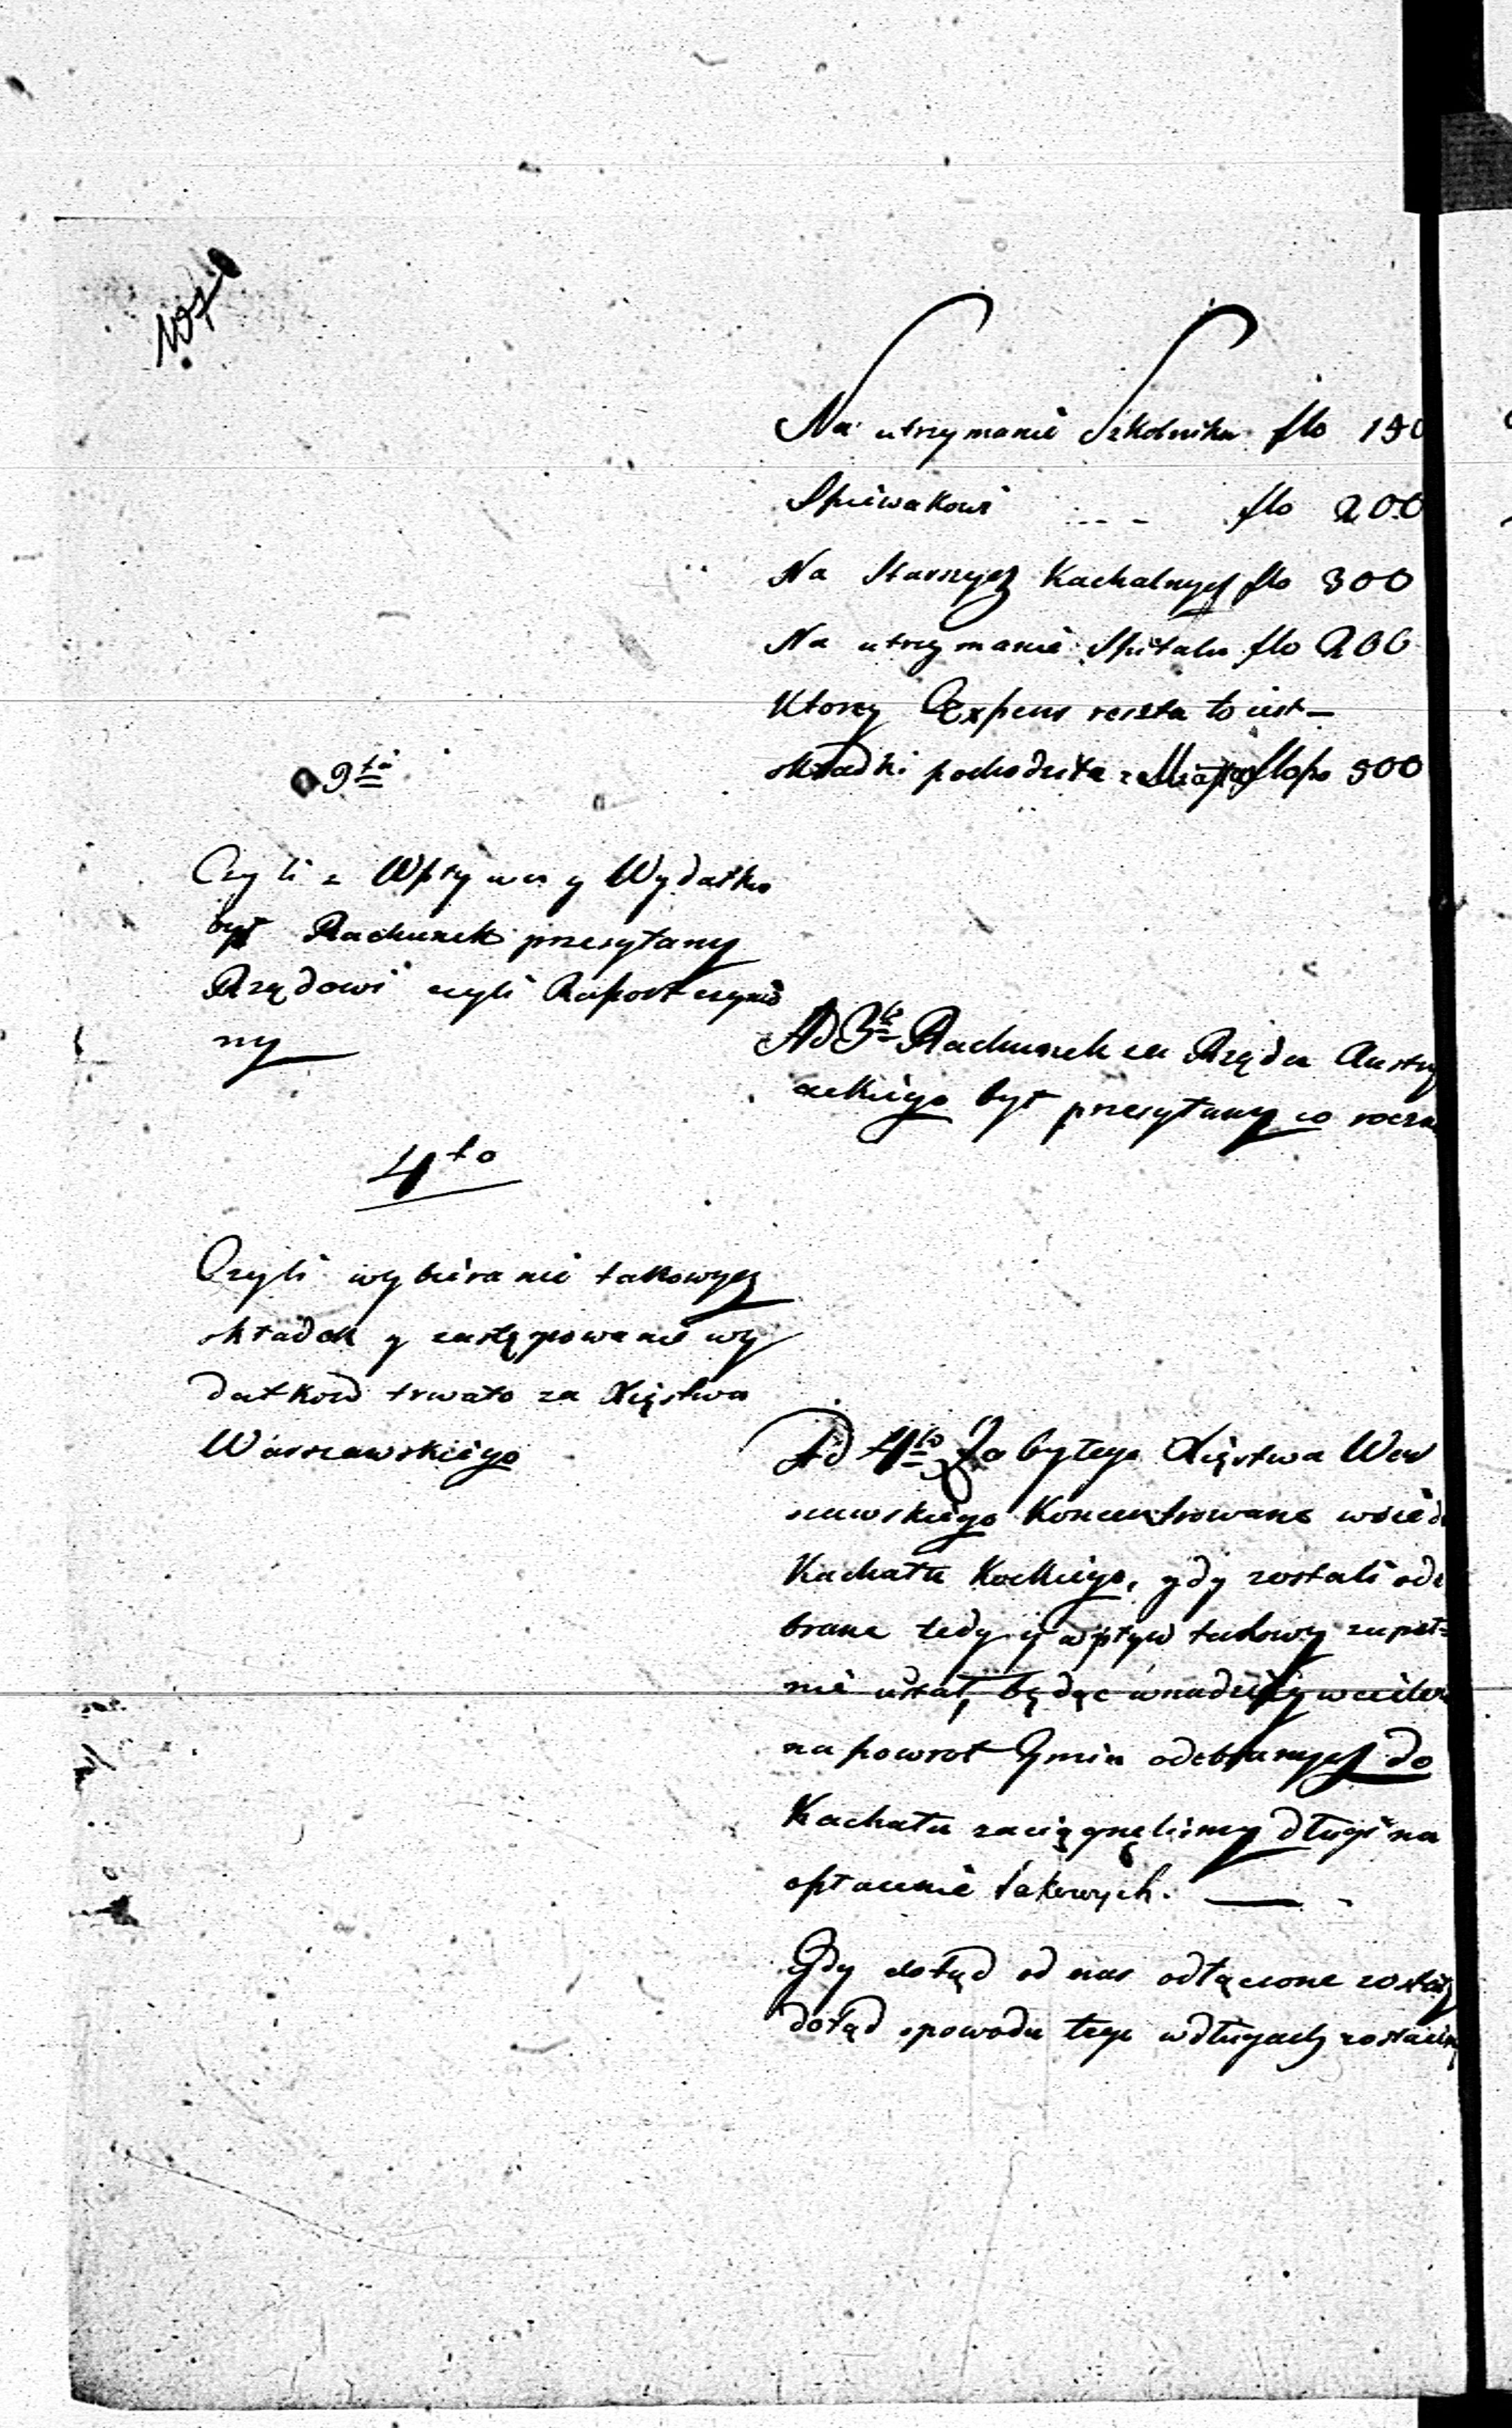 107
Na utrzymanie Szkolnika flo 150
Spiewakowi --- flo 200
Na Starszych Kachalnych flo 300
Na utrzymanie Spitalu flo 200
Ktory Expens reszta to iest –
składki pochodziła z flo 500
3tio
Czyli z Wpływu y Wydatku
był Rachunek przesyłany
Rządowi czyli Raport czynio
ny
Ad 3tio Rachunek za Rządu Austry
ackiego był przesyłany co roczn
4to
Czyli wybieranie takowych
składek y zastępowanie wy
datkow trwało za Xięstwa
Warszawskiego
Ad 4to Za byłego Xięstwa War
szawskiego Koncentrowane
Kachału Kockiego, gdy zostali ode
brane tedy y wpływ takowy zupeł=
nie ustał, będąc w nadziei wciele
na powrot Gmin odebranych do
Kachału zaciągneliśmy długi na
opłacenie takowych. —
Gdy dotąd od nas odłączone zostały
dotąd zpowodu tego w długach zostaiemy